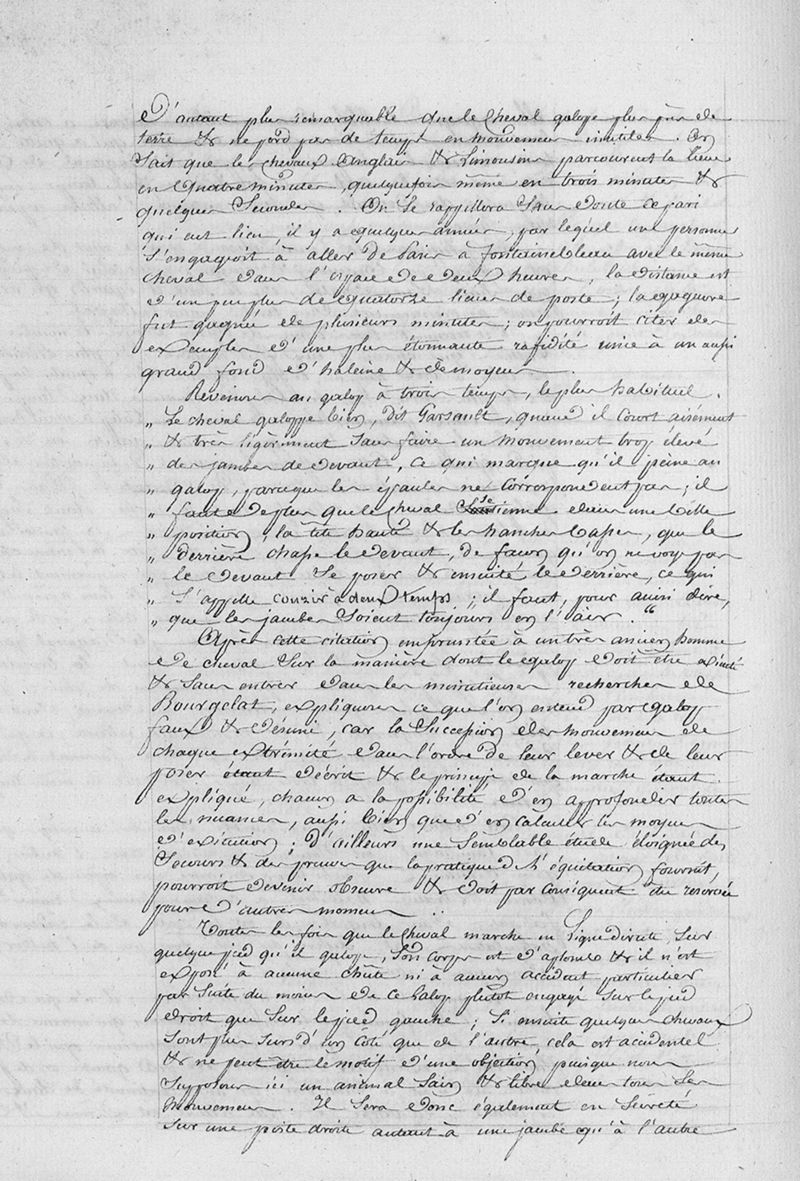 D'autant plus remarquable que le Cheval galope plus près de
terre & ne perd pas de temps en mouvemens inutiles. On
Sait que les chevaux Anglais & Limousins parcourent la lieue
en Quatre minutes, quelquefois même en trois minutes &
quelques Secondes. On Se rappellera Sans doute ce pari
qui eut lieu, il y a quelques années, par lequel une personne
s'engageoit à aller de Paris à fontainebleau avec le même
cheval dans l'espace de deux heures, la distance est
d'un peu plus de quatorze lieues de poste; la gageure
fut gagnée de plusieurs minutes; on pourroit citer des
exemples d'une plus étonnante rapidité unie à un aussi
grand fond d'haleine & de moyens.
Revenons au galop à trois temps, le plus habituel.
„ Le cheval galoppe bien, dit Garsault, quand il court aisément
„ & très légèrement Sans faire un mouvement trop élevé
„ des jambes de devant, ce qui marque qu'il peine au
„ galop, parceque les épaules ne correspondent pas; il
„ faut de plus que le Cheval se tienne dans une belle
„ position, la tête haute & les hanches basses, que le
„ derrière chasse le devant, de façon qu'on ne voye pas
„ le devant Se poser & ensuite le derrière, ce qui
„ S'appelle courir à deux temps; il faut, pour ainsi dire,
„ que les jambes Soient toujours en l'air. “
Après cette citation empruntée à un très ancien homme
de cheval Sur la manière dont le galop doit être exécuté
& Sans entrer dans les minutieuses recherches de
Bourgelat, expliquons ce que l'on entend par Galop
faux & désuni, car la Succession des mouvemens de
chaque extrémité dans l'ordre de leur lever & de leur
poser étant décrit & le principe de la marche étant
expliqué, chacun a la possibilité d'en approfondir toutes
les nuances, aussi bien que d'en calculer les moyens
d'exécution; d'ailleurs une Semblable étude éloignée des
Secours & des preuves que la pratique de l'équitation fournit,
pourroit devenir obscure & doit par conséquent être réservée
pour d'autres momens.
Toutes les fois que le Cheval marche en ligne directe, Sur
quelque pied qu'il galope, Son corps est d'aplomb & il n'est
exposé à aucune chûte ni à aucun accident particulier
par Suite du moins de ce Galop plutôt engagé Sur le pied
droit que Sur le pied gauche; Si ensuite quelques chevaux
Sont plus Surs d'un côté que de l'autre, cela est accidentel
& ne peut être le motif d'une objection, puisque nous
Supposons ici un animal Sain & libre dans tous Ses
mouvemens. Il Sera donc également en Sûreté
Sur une piste droite autant à une jambe qu'à l'autre